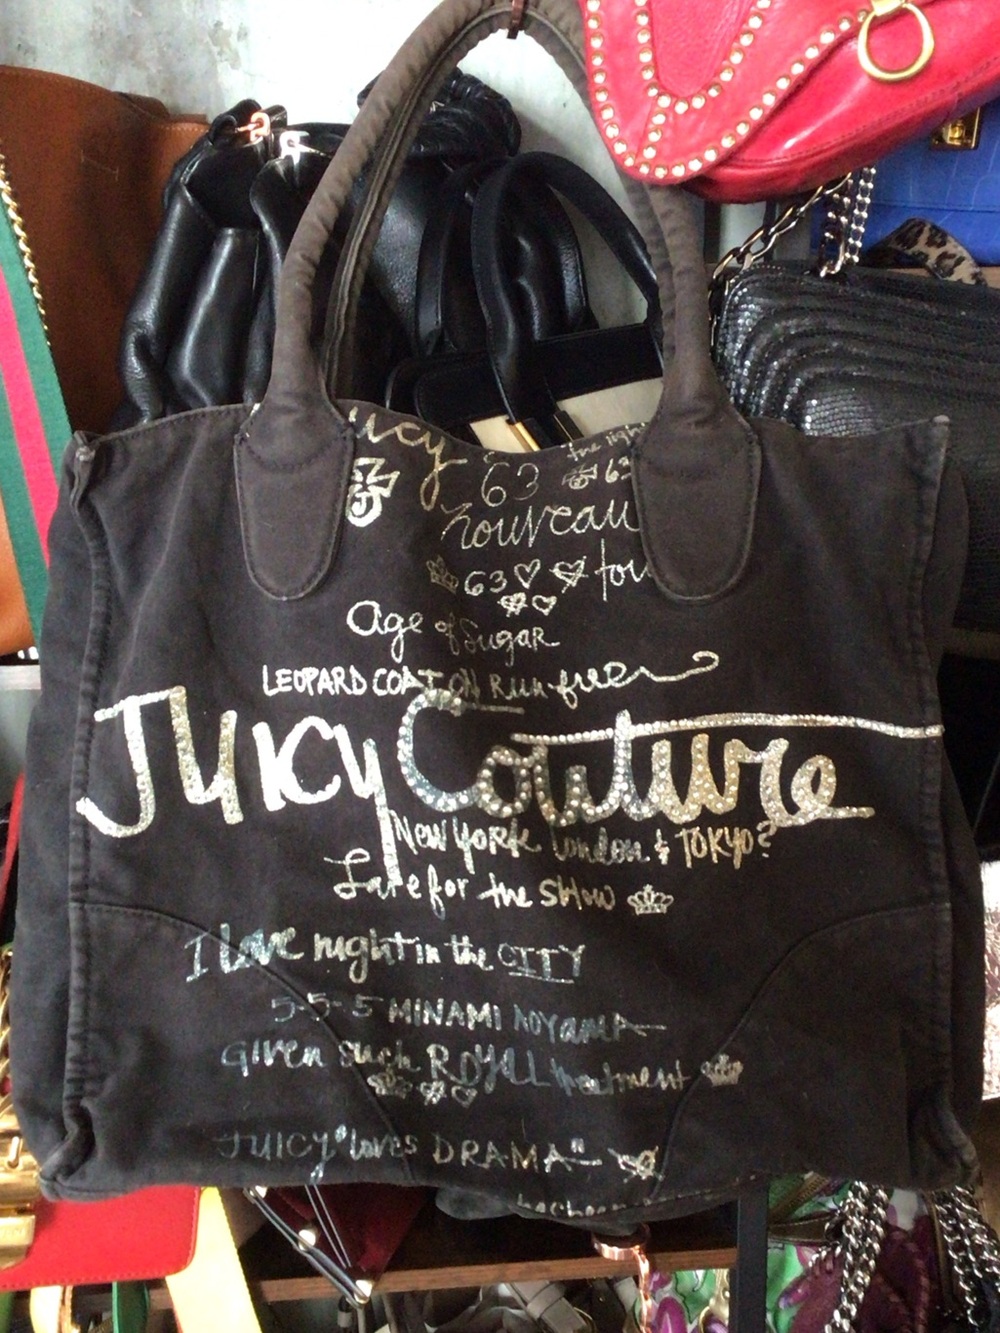 uicy
the light
63
63
nouveau
63 for
Age of Sugar
LEOPARD COAT ON RUN free
Juicy Couture
New York London & TOKYO?
Late for the show
I love night in the CITY
5-5-5 MINAMI AOYAMA
Given such ROYAL treatment
JUICY "loves DRAMA"